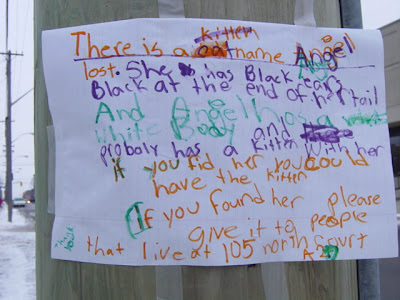 There is a kitten name Angel
lost. She has Black ears
Black at the end of her tail
And Angel has a
White Body and
proboly has a kitten with her
if you fid her you could
have the kitten
If you found her please
give it to people
that live at 105 north court